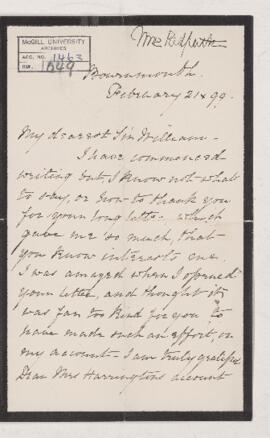 Mrs Redpath
McGILL UNIVERSITY
ARCHIVES
ACC. NO. 1463
REF. 1049
Bournemouth.
February 21st 99.
My dearest Sir William -
I have commenced
writing but I know not what
to say, or how to thank you
for your long letter. which
gave me so much, that
you know interests me.
I was amazed when I opened
your letter, and thought it
was far too kind for you to
have made such an effort, on
my account - I am truly grateful
Dear Mrs Harrington's account